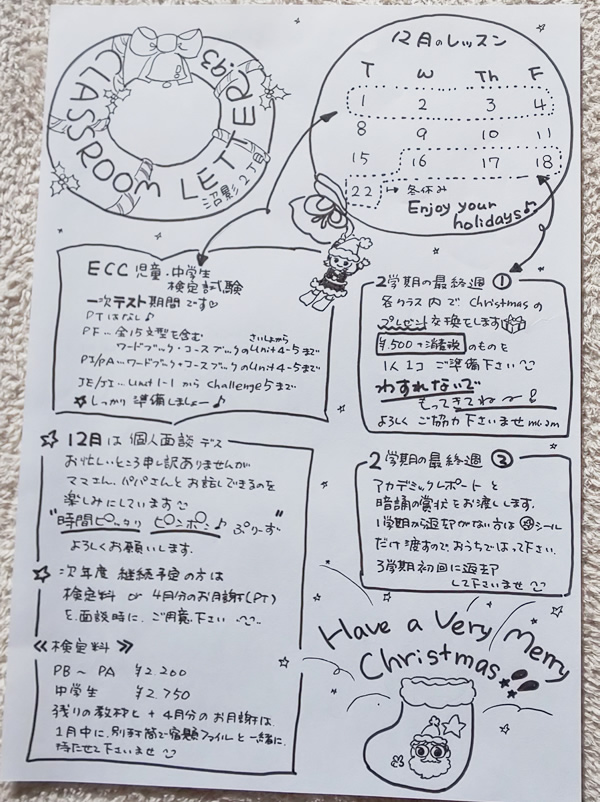 CLASSROOM LETTER
沼影2丁目
12月のレッスン
T W Th F
1 2 3 4
8 9 10 11
15 16 17 18
22 → 冬休み
Enjoy your
holidays♪
ECC 児童・中学生
検定試験
一次テスト期間です♡
PTはなし♪
PF…全15文型を含む
さいしょから
ワードブック・コースブックのunit 4-5まで
PI/PA…ワードブック+コースブックのunit 4-5まで
JE/JI…unit 1-1 から Challenge 5まで
☆しっかり 準備しましょー♪
2学期の最終週 ①
各クラス内で Christmasの
プレゼント交換をします
¥500+消費税 のものを
1人1コ ご準備下さい
わすれないで
もってきてね〜!
よろしく ご協力 下さいませ m(_ _)m
☆ 12月は 個人面談 デス
お忙しいところ申し訳ありませんが
ママさん、パパさんと お話しできるのを
楽しみにしています
"時間ピッタリ ピンポン♪" ぷりーず
よろしくお願いします.
☆ 次年度 継続予定の方は
検定料 or 4月分のお月謝(PT)
を面談時に、ご用意下さい
《検定料》
PB〜PA ¥2.200
中学生 ¥2.750
残りの教材と + 4月分のお月謝は、
1月中に、別封筒で宿題ファイルと一緒に、
持たせて下さいませ
2学期の最終週 ③
アカデミックレポート と
暗誦の賞状を お渡しします。
1学期から返却がない方は シール
だけ渡すので、おうちで はって下さい.
3学期初回に返却
して下さいませ
Have a Very Merry
Christmas!!